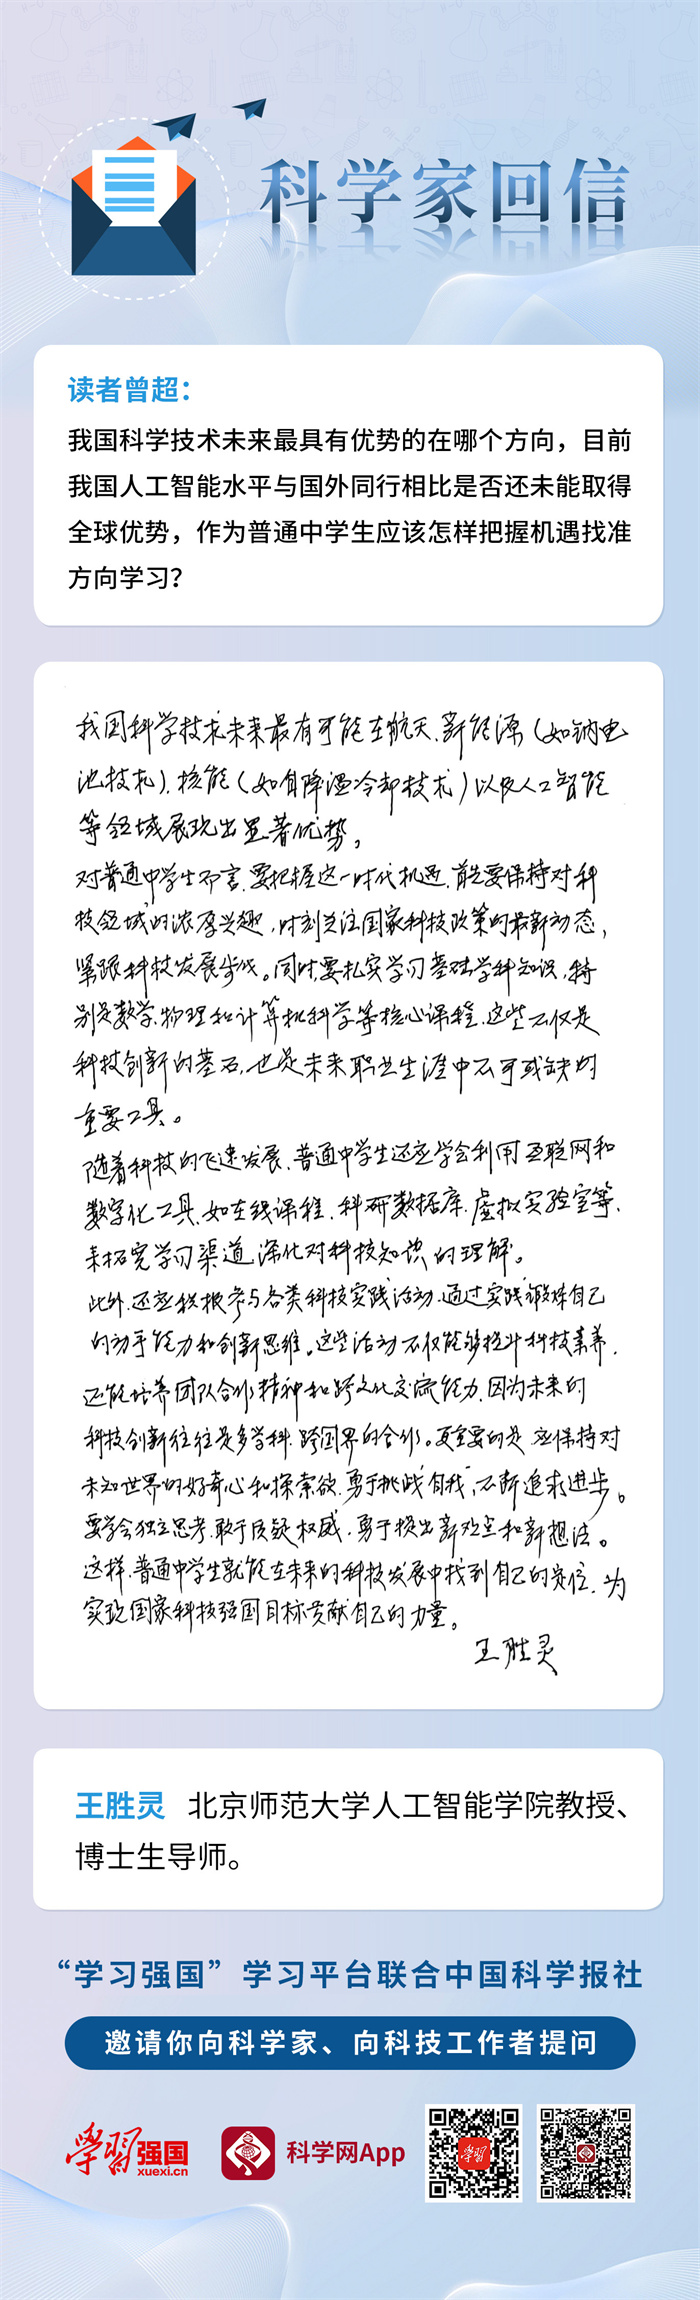 科学家回信
读者曾超：
我国科学技术未来最具有优势的在哪个方向，目前
我国人工智能水平与国外同行相比是否还未能取得
全球优势，作为普通中学生应该怎样把握机遇找准
方向学习？
我国科学技术未来最有可能在航天、新能源（如钠电
池技术）、核能（如自降温冷却技术）以及人工智能
等领域展现出显著优势。
对普通中学生而言，要把握这一时代机遇，首先要保持对科
技领域的浓厚兴趣，时刻关注国家科技政策的最新动态，
紧跟科技发展步伐。同时，要扎实学习基础学科知识，特
别是数学、物理和计算机科学等核心课程，这些不仅是
科技创新的基石，也是未来职业生涯中不可或缺的
重要工具。
随着科技的飞速发展，普通中学生还应学会利用互联网和
数字化工具，如在线课程、科研数据库、虚拟实验室等，
来拓宽学习渠道，深化对科技知识的理解。
此外，还应积极参与各类科技实践活动，通过实践锻炼自己
的动手能力和创新思维。这些活动不仅能够提升科技素养，
还能培养团队合作精神和跨文化交流能力，因为未来的
科技创新往往是多学科、跨国界的合作。更重要的是，应保持对
未知世界的好奇心和探索欲，勇于挑战自我，不断追求进步。
要学会独立思考，敢于质疑权威，勇于提出新观点和新想法。
这样，普通中学生就能在未来的科技发展中找到自己的定位，为
实现国家科技强国目标贡献自己的力量。
王胜灵
王胜灵 北京师范大学人工智能学院教授、
博士生导师。
“学习强国”学习平台联合中国科学报社
邀请你向科学家、向科技工作者提问
学习强国
xuexi.cn
科学网App
学习